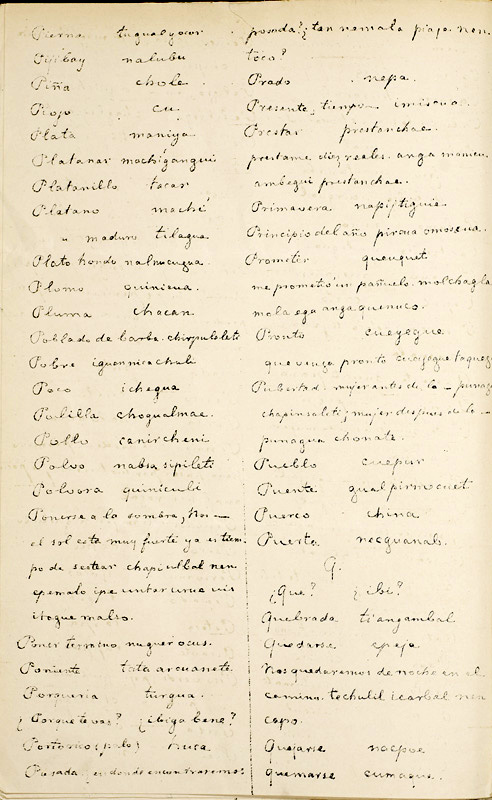 Pierna tugualyocor
Pijibay nalubu
Piña chole
Piojo cu
Plata maniya
Platanar machigangui
Platanillo tacar
Platano maché
" maduro tilagua
Plato hondo nalmucugua.
Plomo quinicua.
Pluma chacan
Poblado de barba. chirpulolete
Pobre iguonnicachuli
Poco ichegua
Polilla chogualmae.
Pollo canircheni
Polvo nabsa sipileti
Polvora quiniculi
Ponerse a la sombra,
el sol está muy fuerte ya es tiem
po de sestear chapiculbal nen
epemalo ipe untor urue uis
itogue malso.
Poner termino nuguerocus.
Poniente tata arcuanete
Porqueria turgua.
¿Porque te vas? ¿ibiga bene?
Portornos (palo) nuca
Posada, ¿en donde encontraremos
posada? ¿tan nemala piaja nen.
toco?
Prado nepa.
Presente, tiempo imiscua.
Prestar prestanchae.
prestame diez reales. anga mamcu.
ambegui prestanchae.
Primavera napijtiguia
Principio del año pircua omoscua.
Prometer queuguet
me prometió un pañuelo. molchagla
mola ega anga quenuco.
Pronto cueyegue
que venga pronto cueyegue taquega
Pubertad: mujer antes de la - punagua
chapinsaleti; mujer despues de la -
punagua chonate.
Pueblo cuepur
Puente gualpirmocuet
Puerco china
Puerta necguanab.
Q.
¿Que? ¿ibi?
Quebrada tiangambal
Quedarse epeja
Nos quedaremos de noche en el
camino. techulil icarbal nen
capo.
Quejarse nacpoe
quemarse cumaque.